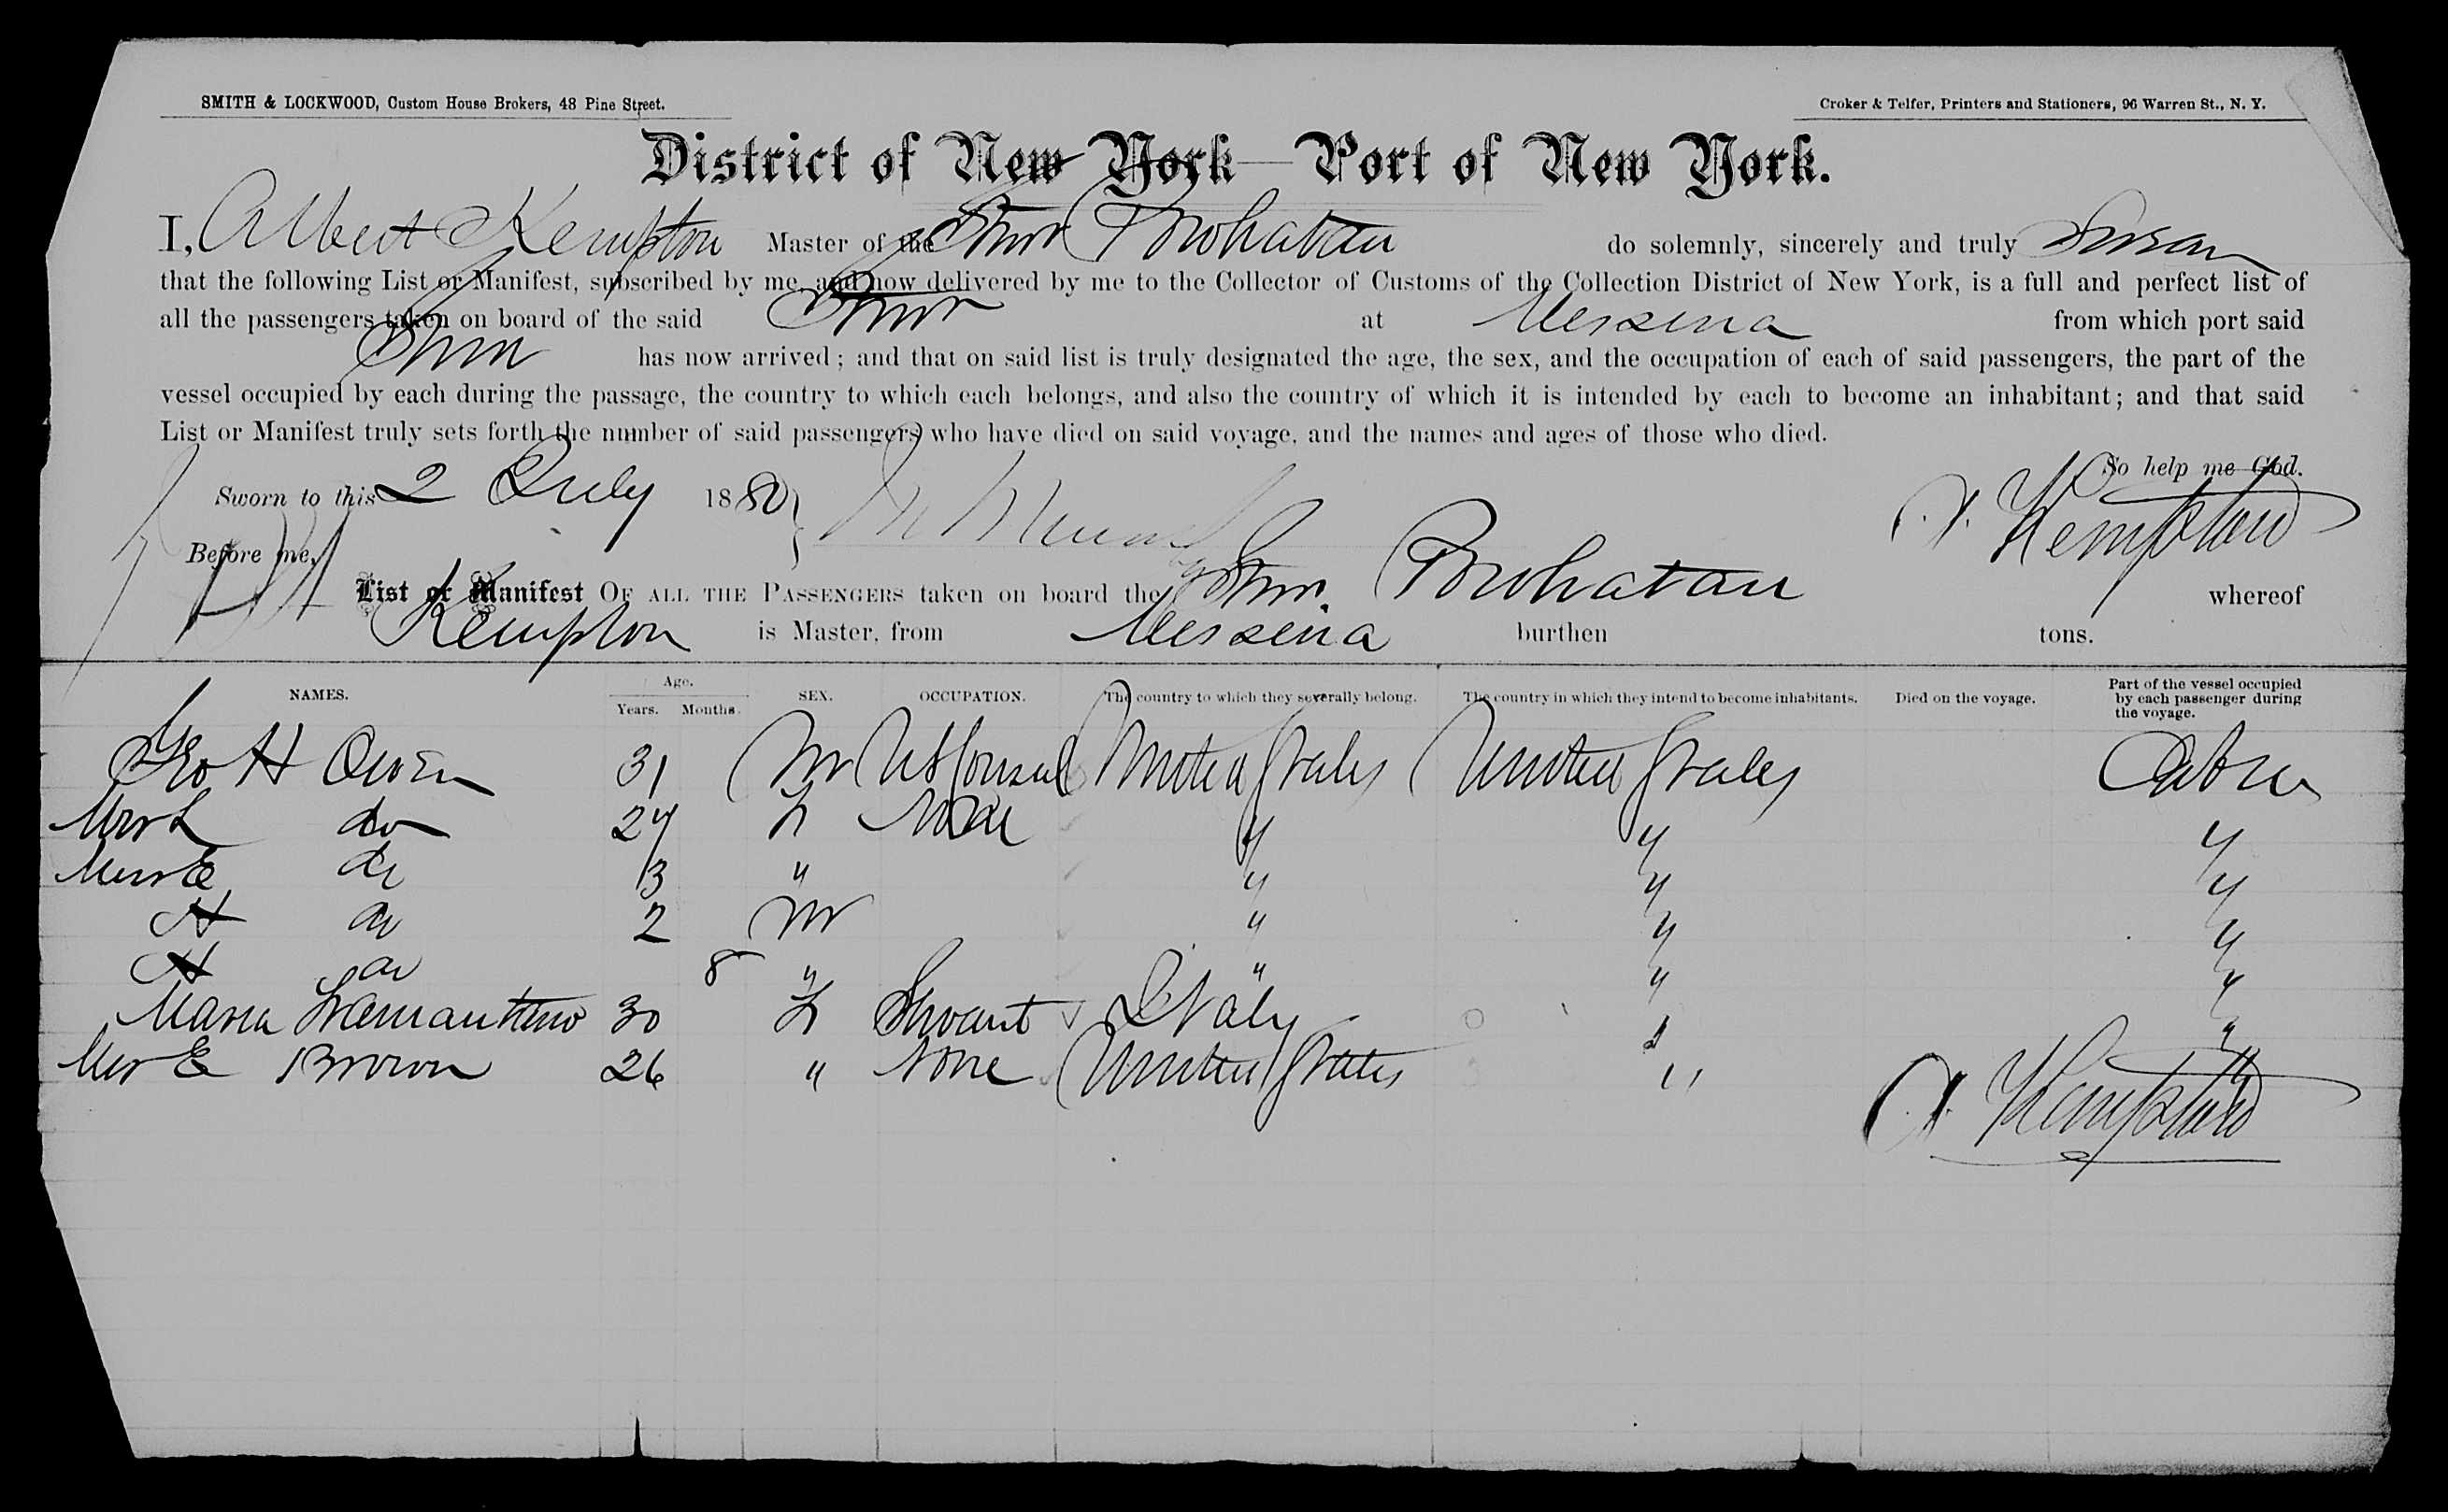 SMITH & LOCKWOOD, Custom House Brokers, 48 Pine Street.
Croker & Telfer, Printers and Stationers, 96 Warren St., N. Y.
District of New York—Port of New York.
I, Albert Kempton Master of the Stmr Powhatan do solemnly, sincerely and truly Swear
that the following List or Manifest, subscribed by me, and now delivered by me to the Collector of Customs of the Collection District of New York, is a full and perfect list of
all the passengers taken on board of the said Stmr at Messina from which port said
Stmr has now arrived; and that on said list is truly designated the age, the sex, and the occupation of each of said passengers, the part of the
vessel occupied by each during the passage, the country to which each belongs, and also the country of which it is intended by each to become an inhabitant; and that said
List or Manifest truly sets forth the number of said passengers who have died on said voyage, and the names and ages of those who died.
So help me God.
Sworn to this 2 July 1880
A. Kempton
Before me,
List or Manifest OF ALL THE PASSENGERS taken on board the Stmr. Powhatan whereof
Kempton is Master, from Messina burthen tons.
NAMES. Age. Years. Months. SEX. OCCUPATION. The country to which they severally belong. The country in which they intend to become inhabitants. Died on the voyage. Part of the vessel occupied by each passenger during the voyage.
Geo H Owen 31 M US Consul United States United States Cabin
Mrs L do 27 F None " " "
Miss E do 3 " " " "
H do 2 M " " "
H do 8 " " " "
Maria 30 F Servant Italy " "
Mrs E Brown 26 " None United States " "
A. Kempton